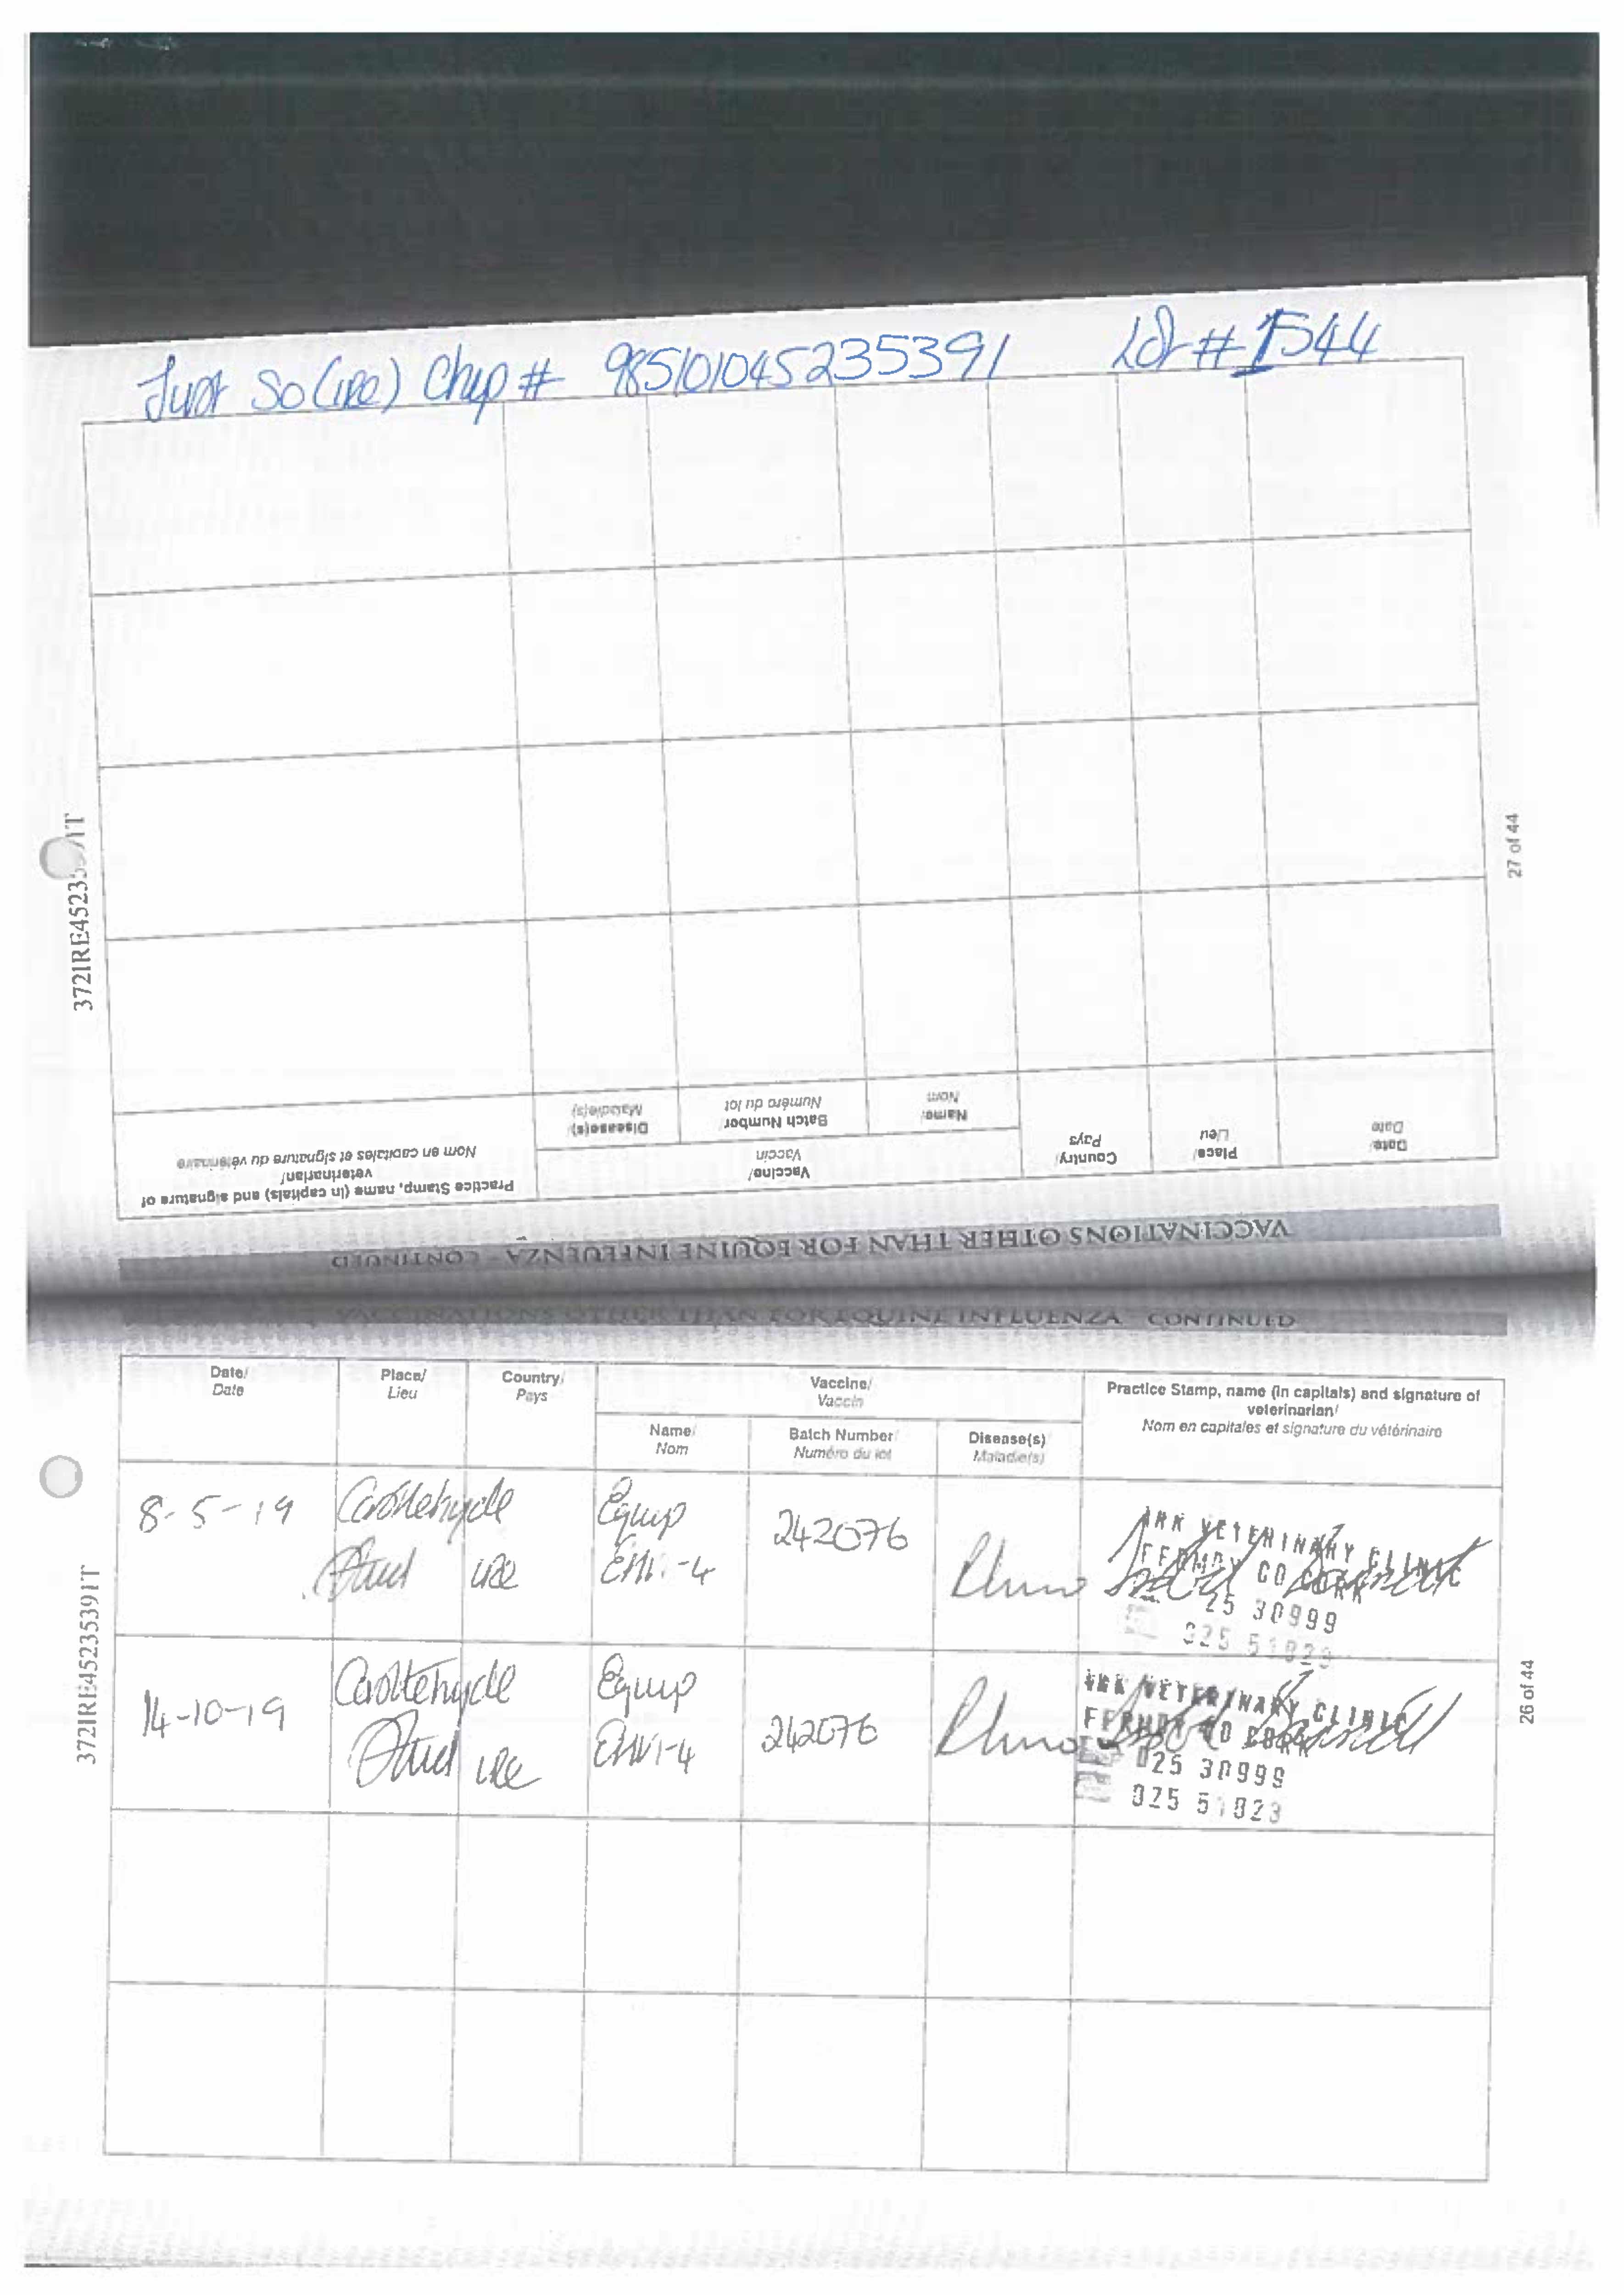 Just So (IRE) Chip # 985101045235391 Lot # 1544
27 of 44
Practice Stamp, name (in capitals) and signature of
veterinarian/
Nom en capitales et signature du vétérinaire
Disease(s)
Maladie(s)
Batch Number
Numéro du lot
Name/
Nom
Vaccine/
Vaccin
Country/
Pays
Place/
Lieu
Date/
Date
VACCINATIONS OTHER THAN FOR EQUINE INFLUENZA - CONTINUED
VACCINATIONS OTHER THAN FOR EQUINE INFLUENZA - CONTINUED
Date/
Date
Place/
Lieu
Country/
Pays
Vaccine/
Vaccin
Name/
Nom
Batch Number/
Numéro du lot
Disease(s)
Maladie(s)
Practice Stamp, name (in capitals) and signature of
veterinarian/
Nom en capitales et signature du vétérinaire
8-5-19
Castlehyde
Stud
IRE
Equip
EHV1-4
242076
Rhino
VETERINARY CLINIC
FERMOY CO CORK
25 30999
025 51823
14-10-19
Castlehyde
Stud
IRE
Equip
EHV1-4
242076
Rhino
VETERINARY CLINIC
FERMOY CO CORK
025 30999
025 51823
372IRE4523539IT
26 of 44